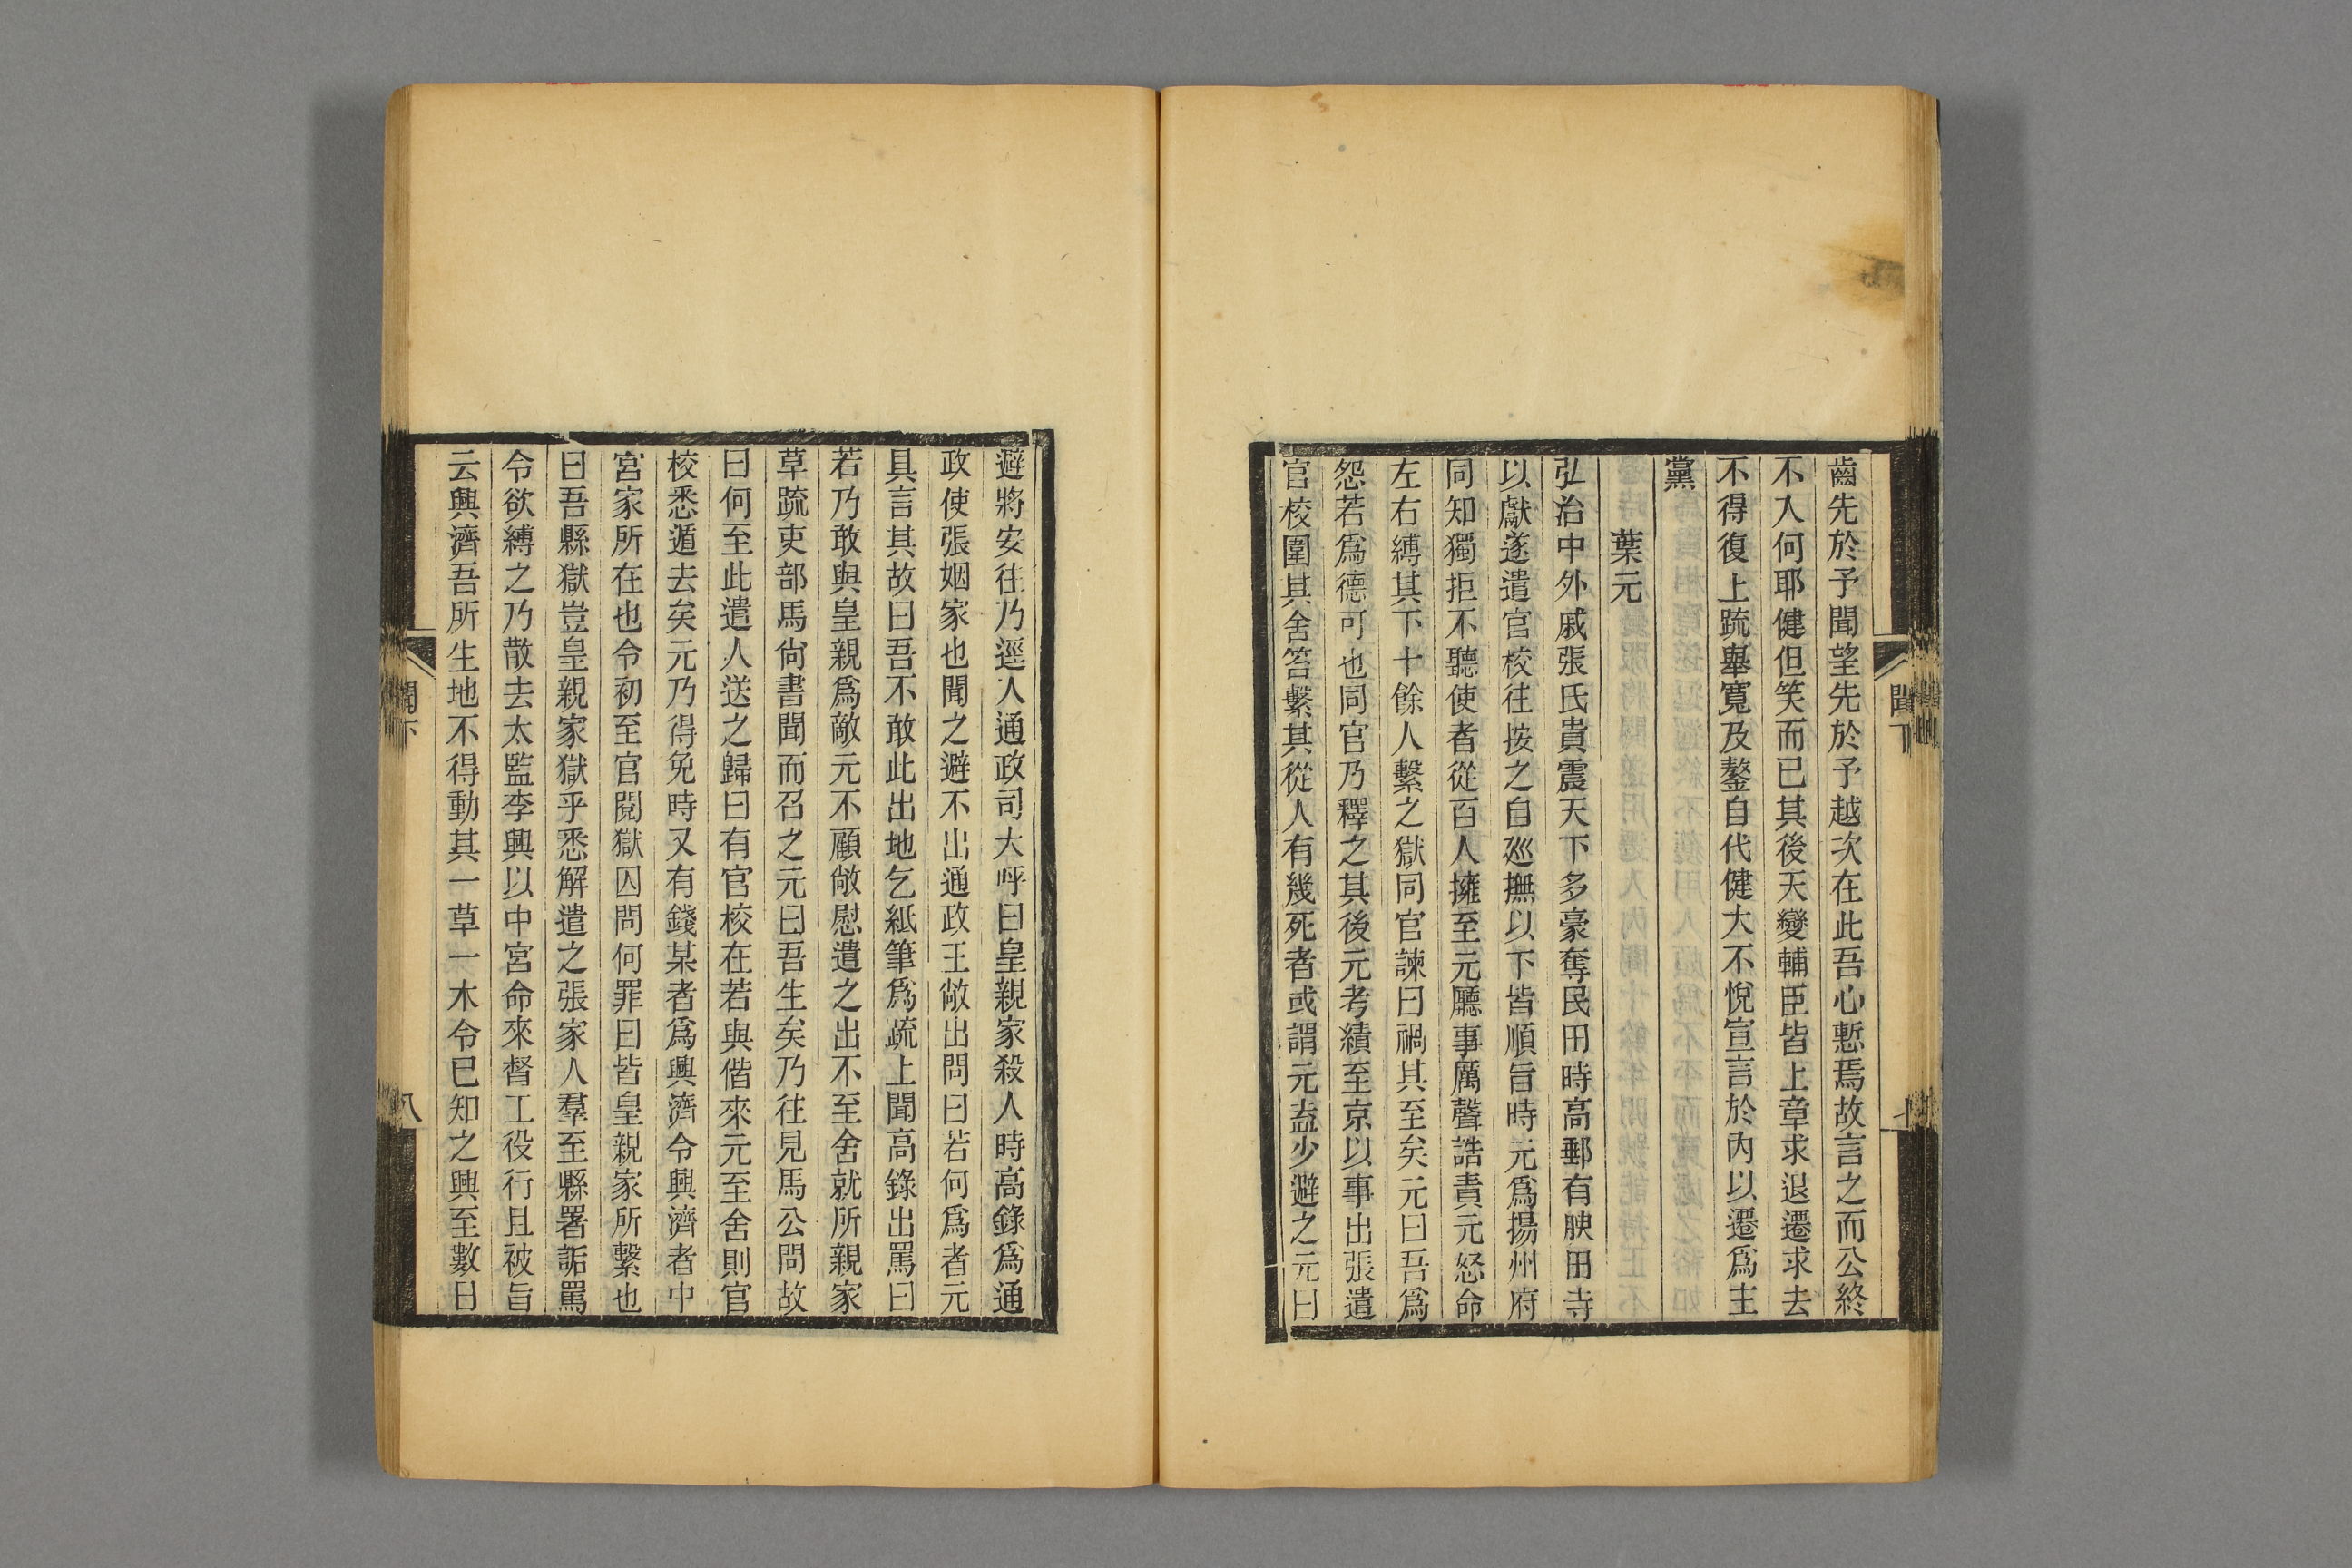 齒先於予聞望先於予越次在此吾心慙焉故言之而公終
不入何耶健但笑而已其後天變輔臣皆上章求退遷求去
不得復上疏舉寬及鏊自代健大不悅宣言於內以遷爲主
黨
葉元
弘治中外戚張氏貴震天下多豪奪民田時高郵有腴田寺
以獻遂遣官校往按之自廵撫以下皆順旨時元爲揚州府
同知獨拒不聽使者從百人擁至元廳事厲聲誥責元怒命
左右縛其下十餘人繫之獄同官諫曰禍其至矣元曰吾爲
怨若爲德可也同官乃釋之其後元考績至京以事出張遣
官校圍其舍笞繫其從人有幾死者或謂元盍少避之元曰
聞下
七
避將安往乃逕入通政司大呼曰皇親家殺人時高錄爲通
政使張姻家也聞之避不出通政王敞出問曰若何爲者元
具言其故曰吾不敢此出地乞紙筆爲疏上聞高錄出罵曰
若乃敢與皇親爲敵元不顧敞慰遣之出不至舍就所親家
草疏吏部馬尙書聞而召之元曰吾生矣乃往見馬公問故
曰何至此遣人送之歸曰有官校在若與偕來元至舍則官
校悉遁去矣元乃得免時又有錢某者爲興濟令興濟者中
宮家所在也令初至官閱獄囚問何罪曰皆皇親家所繫也
曰吾縣獄豈皇親家獄乎悉解遣之張家人羣至縣署詬罵
令欲縛之乃散去太監李興以中宮命來督工役行且被旨
云興濟吾所生地不得動其一草一木令已知之興至數日
聞下
八